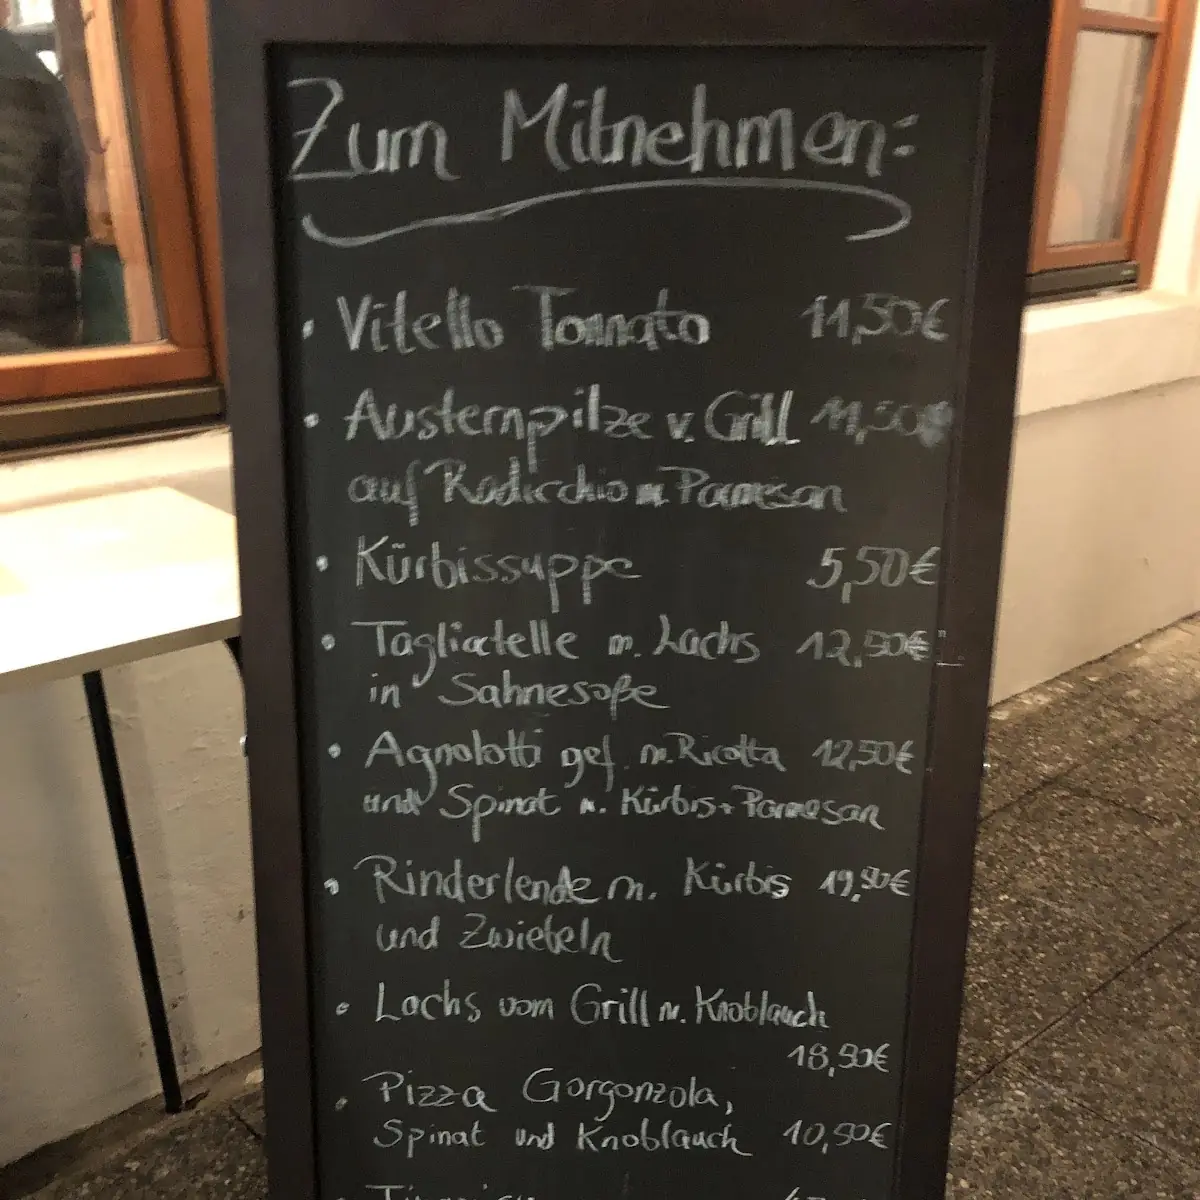 Zum Mitnehmen:
• Vitello Tonnato 11,50€
• Austernpilze v. Grill 11,50€
auf Radicchio m. Parmesan
• Kürbissuppe 5,50€
• Tagliatelle m. Lachs 12,50€
in Sahnesoße
• Agnolotti gef. m. Ricotta 12,50€
und Spinat m. Kürbis + Parmesan
• Rinderlende m. Kürbis 19,50€
und Zwiebeln
• Lachs vom Grill m. Knoblauch
18,50€
• Pizza Gorgonzola,
Spinat und Knoblauch 10,50€